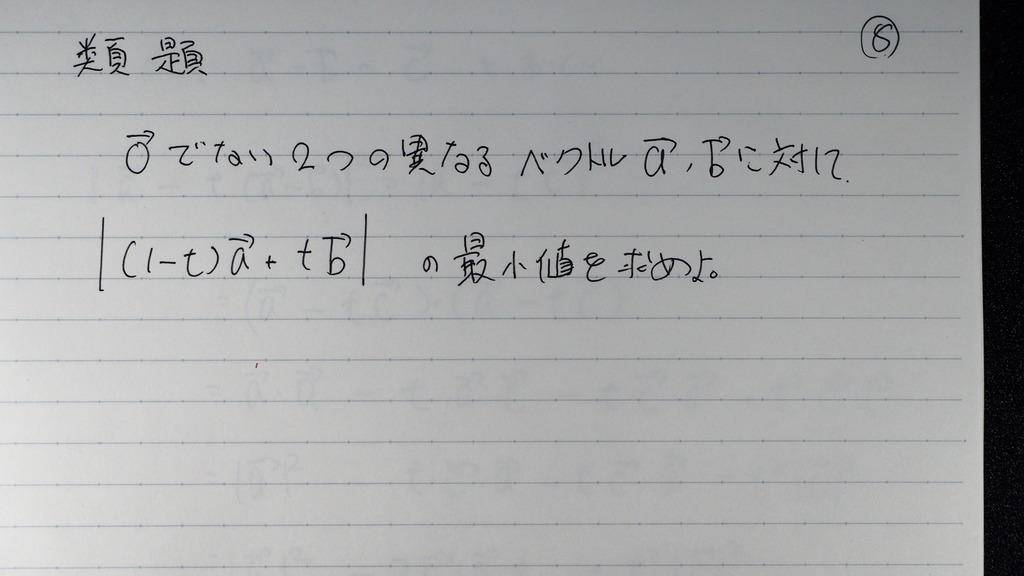 類題 ⑧
0⃗でない2つの異なるベクトル a⃗, b⃗に対して
|(1-t)a⃗ + tb⃗| の最小値を求めよ。